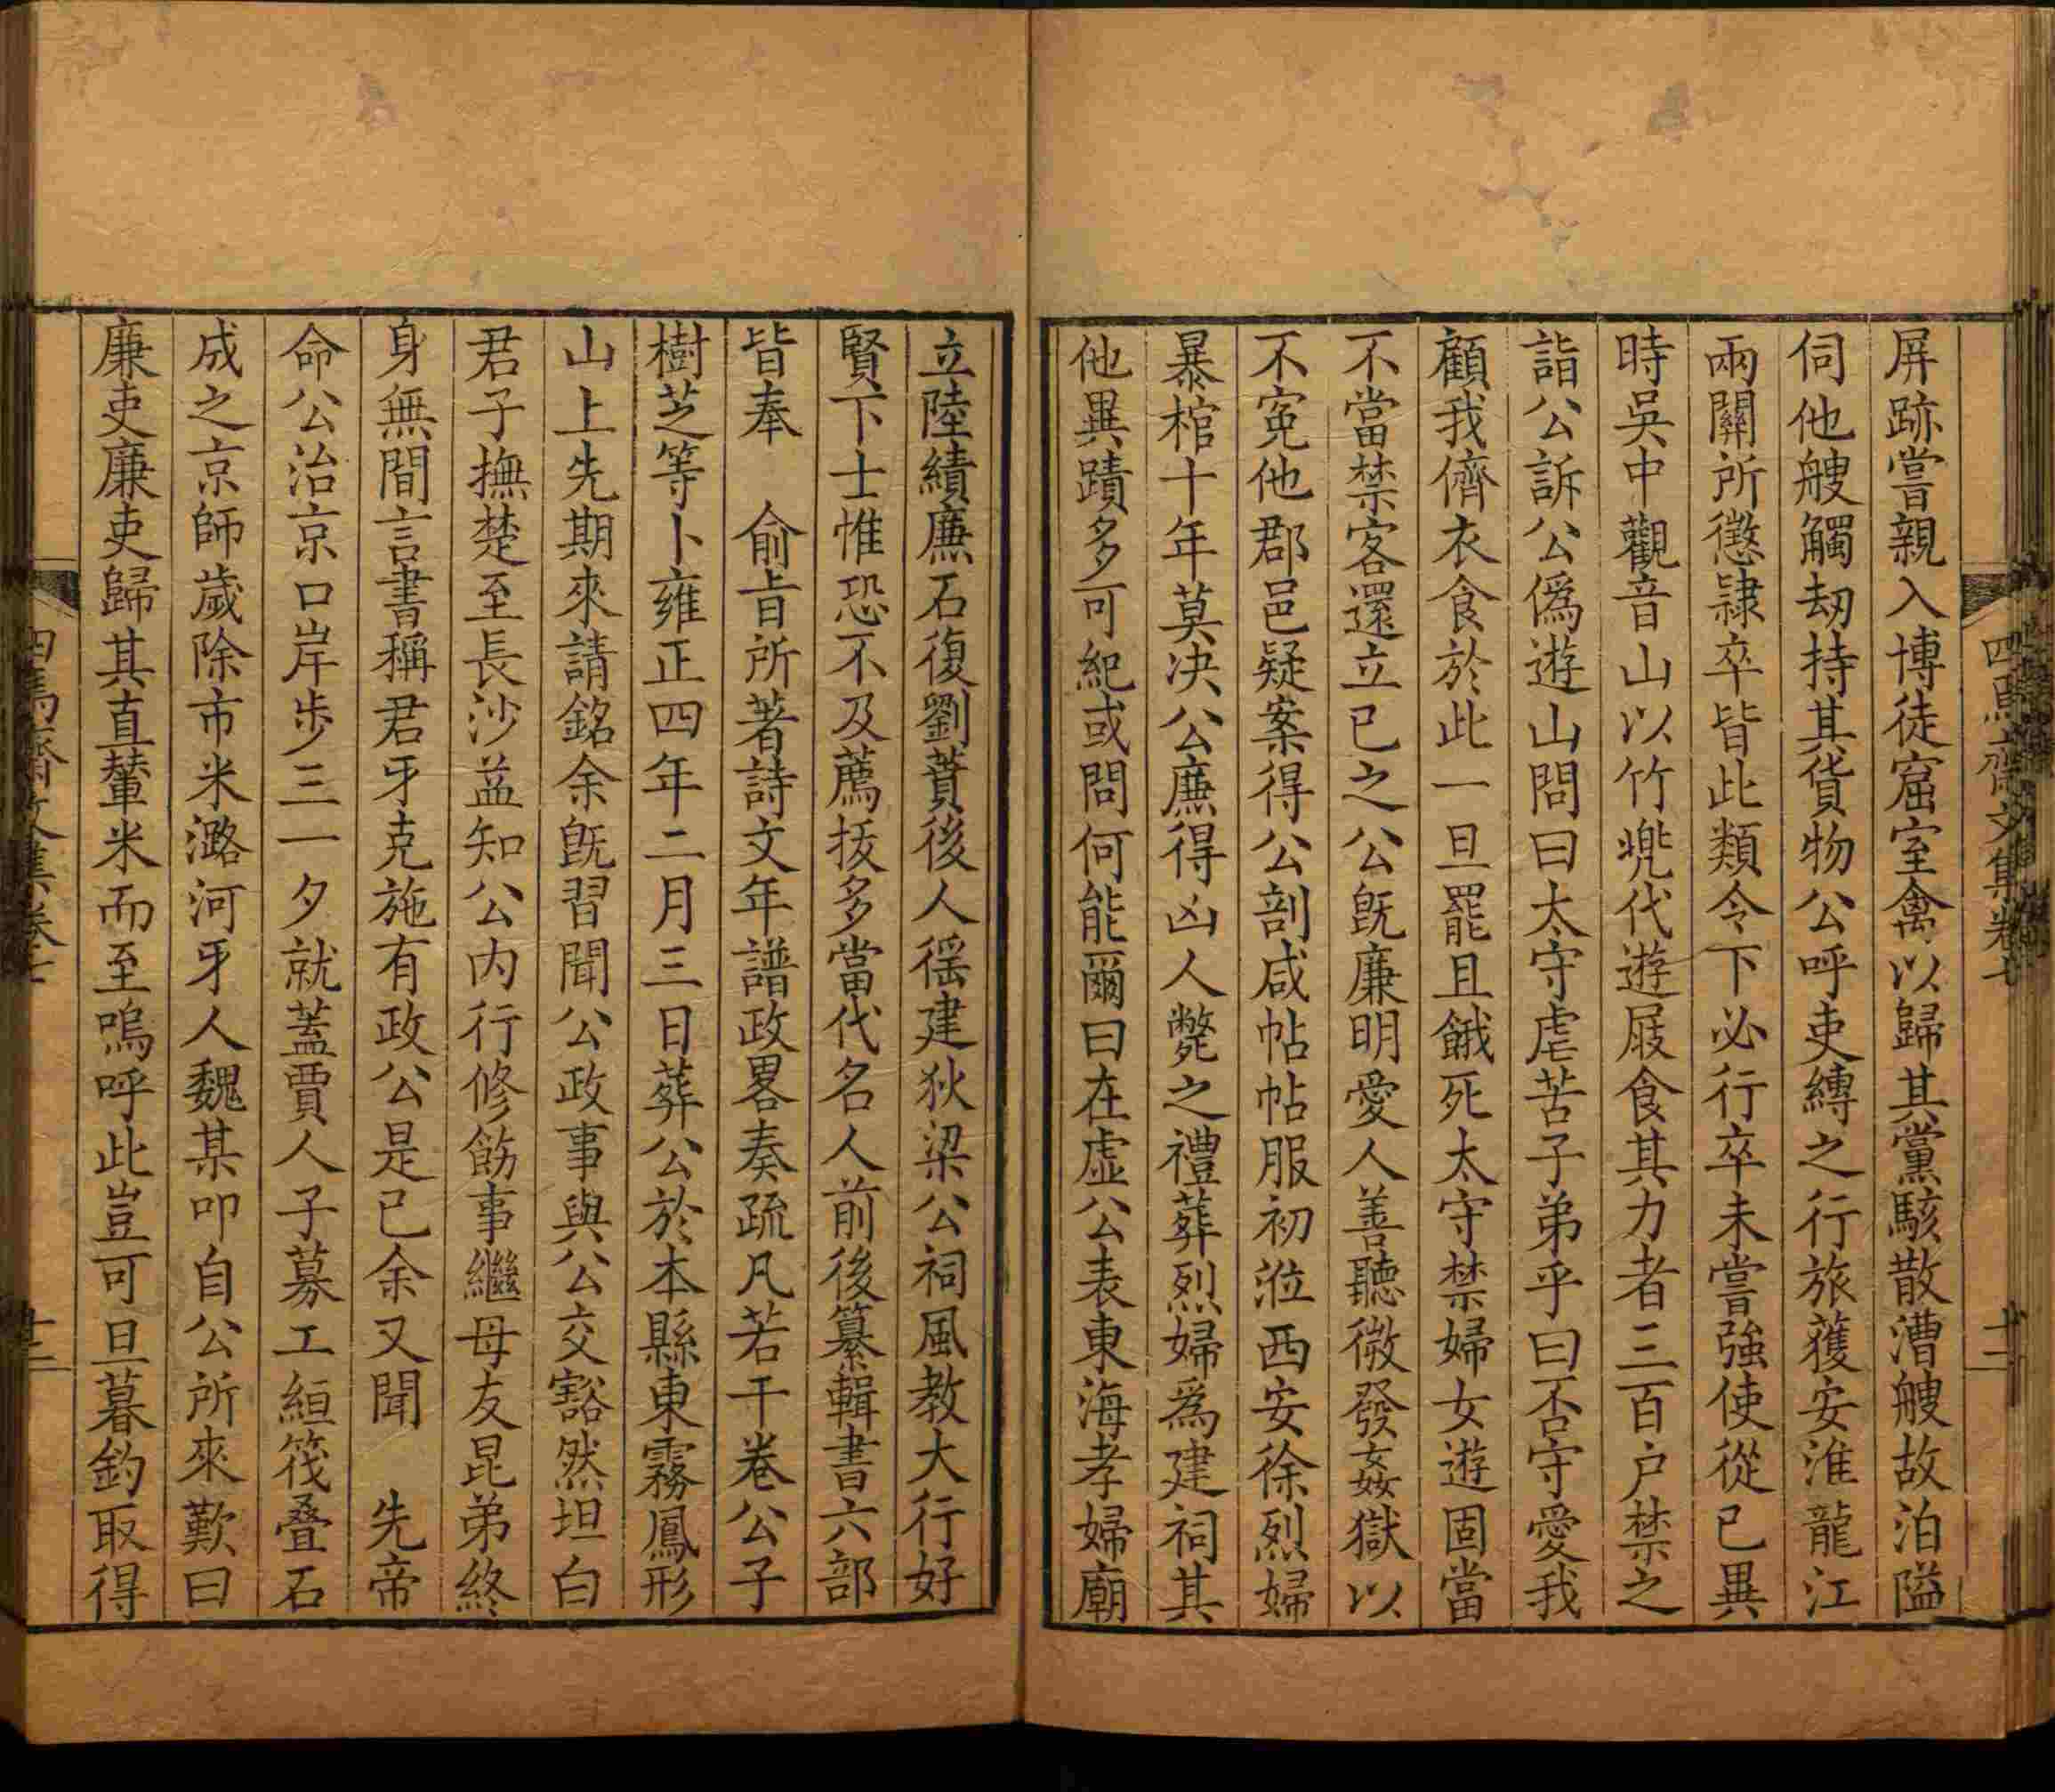 四焉齋文集卷七
十二
屏跡嘗親入博徒窟室禽以歸其黨駭散漕艘故泊隘
伺他艘觸刼持其貨物公呼吏縛之行旅獲安淮龍江
兩關所懲隷卒皆此類令下必行卒未嘗強使從已異
時吳中觀音山以竹兠代遊屐食其力者三百户禁之
詣公訴公僞遊山問曰太守虐苦子弟乎曰否守愛我
顧我儕衣食於此一旦罷且餓死太守禁婦女遊固當
不當禁客還立已之公旣廉明愛人善聽微發姦獄以
不寃他郡邑疑案得公剖咸帖帖服初涖西安徐烈婦
暴棺十年莫决公廉得凶人斃之禮葬烈婦爲建祠其
他異蹟多可紀或問何能爾曰在虛公表東海孝婦廟
立陸績廉石復劉蕡後人徭建狄梁公祠風教大行好
賢下士惟恐不及薦拔多當代名人前後纂輯書六部
皆奉 俞㫖所著詩文年譜政畧奏疏凡若干卷公子
樹芝等卜雍正四年二月三日葬公於本縣東霧鳳形
山上先期來請銘余旣習聞公政事與公交豁然坦白
君子撫楚至長沙益知公内行修飭事繼母友昆弟終
身無間言書稱君牙克施有政公是已余又聞 先帝
命公治京口岸步三一夕就蓋賈人子募工絙筏叠石
成之京師歲除市米潞河牙人魏某叩自公所來歎曰
廉吏廉吏歸其直輦米而至嗚呼此豈可旦暮釣取得
四焉齋文集卷七
十三